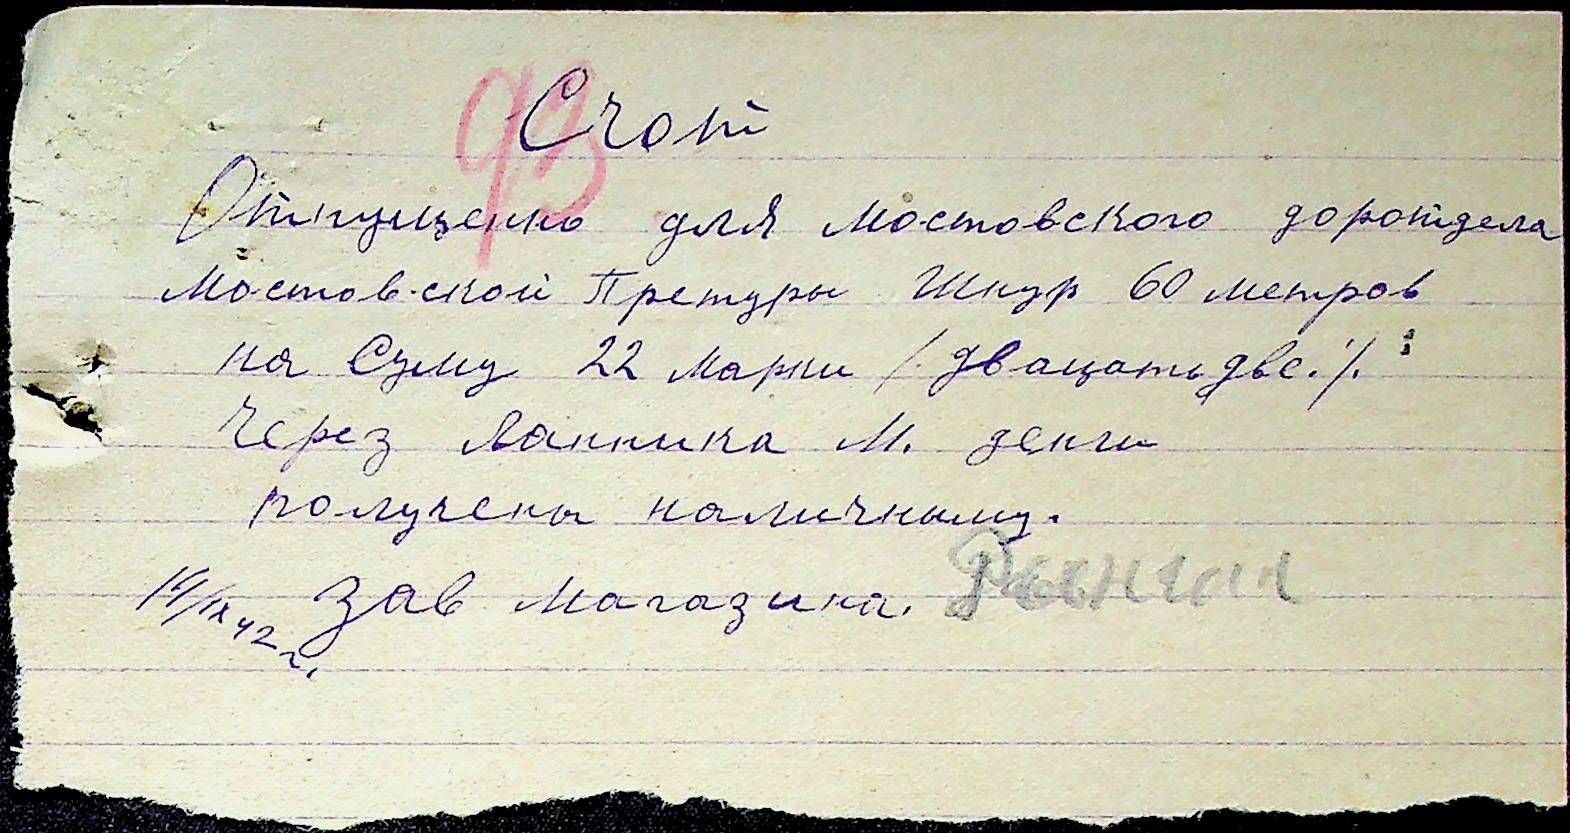 93
Счот
Отпущенно для Мостовского доротдела
Мостовской Претуры Шнур 60 метров
на Суму 22 марки /. двацать две ./.
через Ванника М. денги
получены наличныму.
14/IX 42 г. Зав магазина.